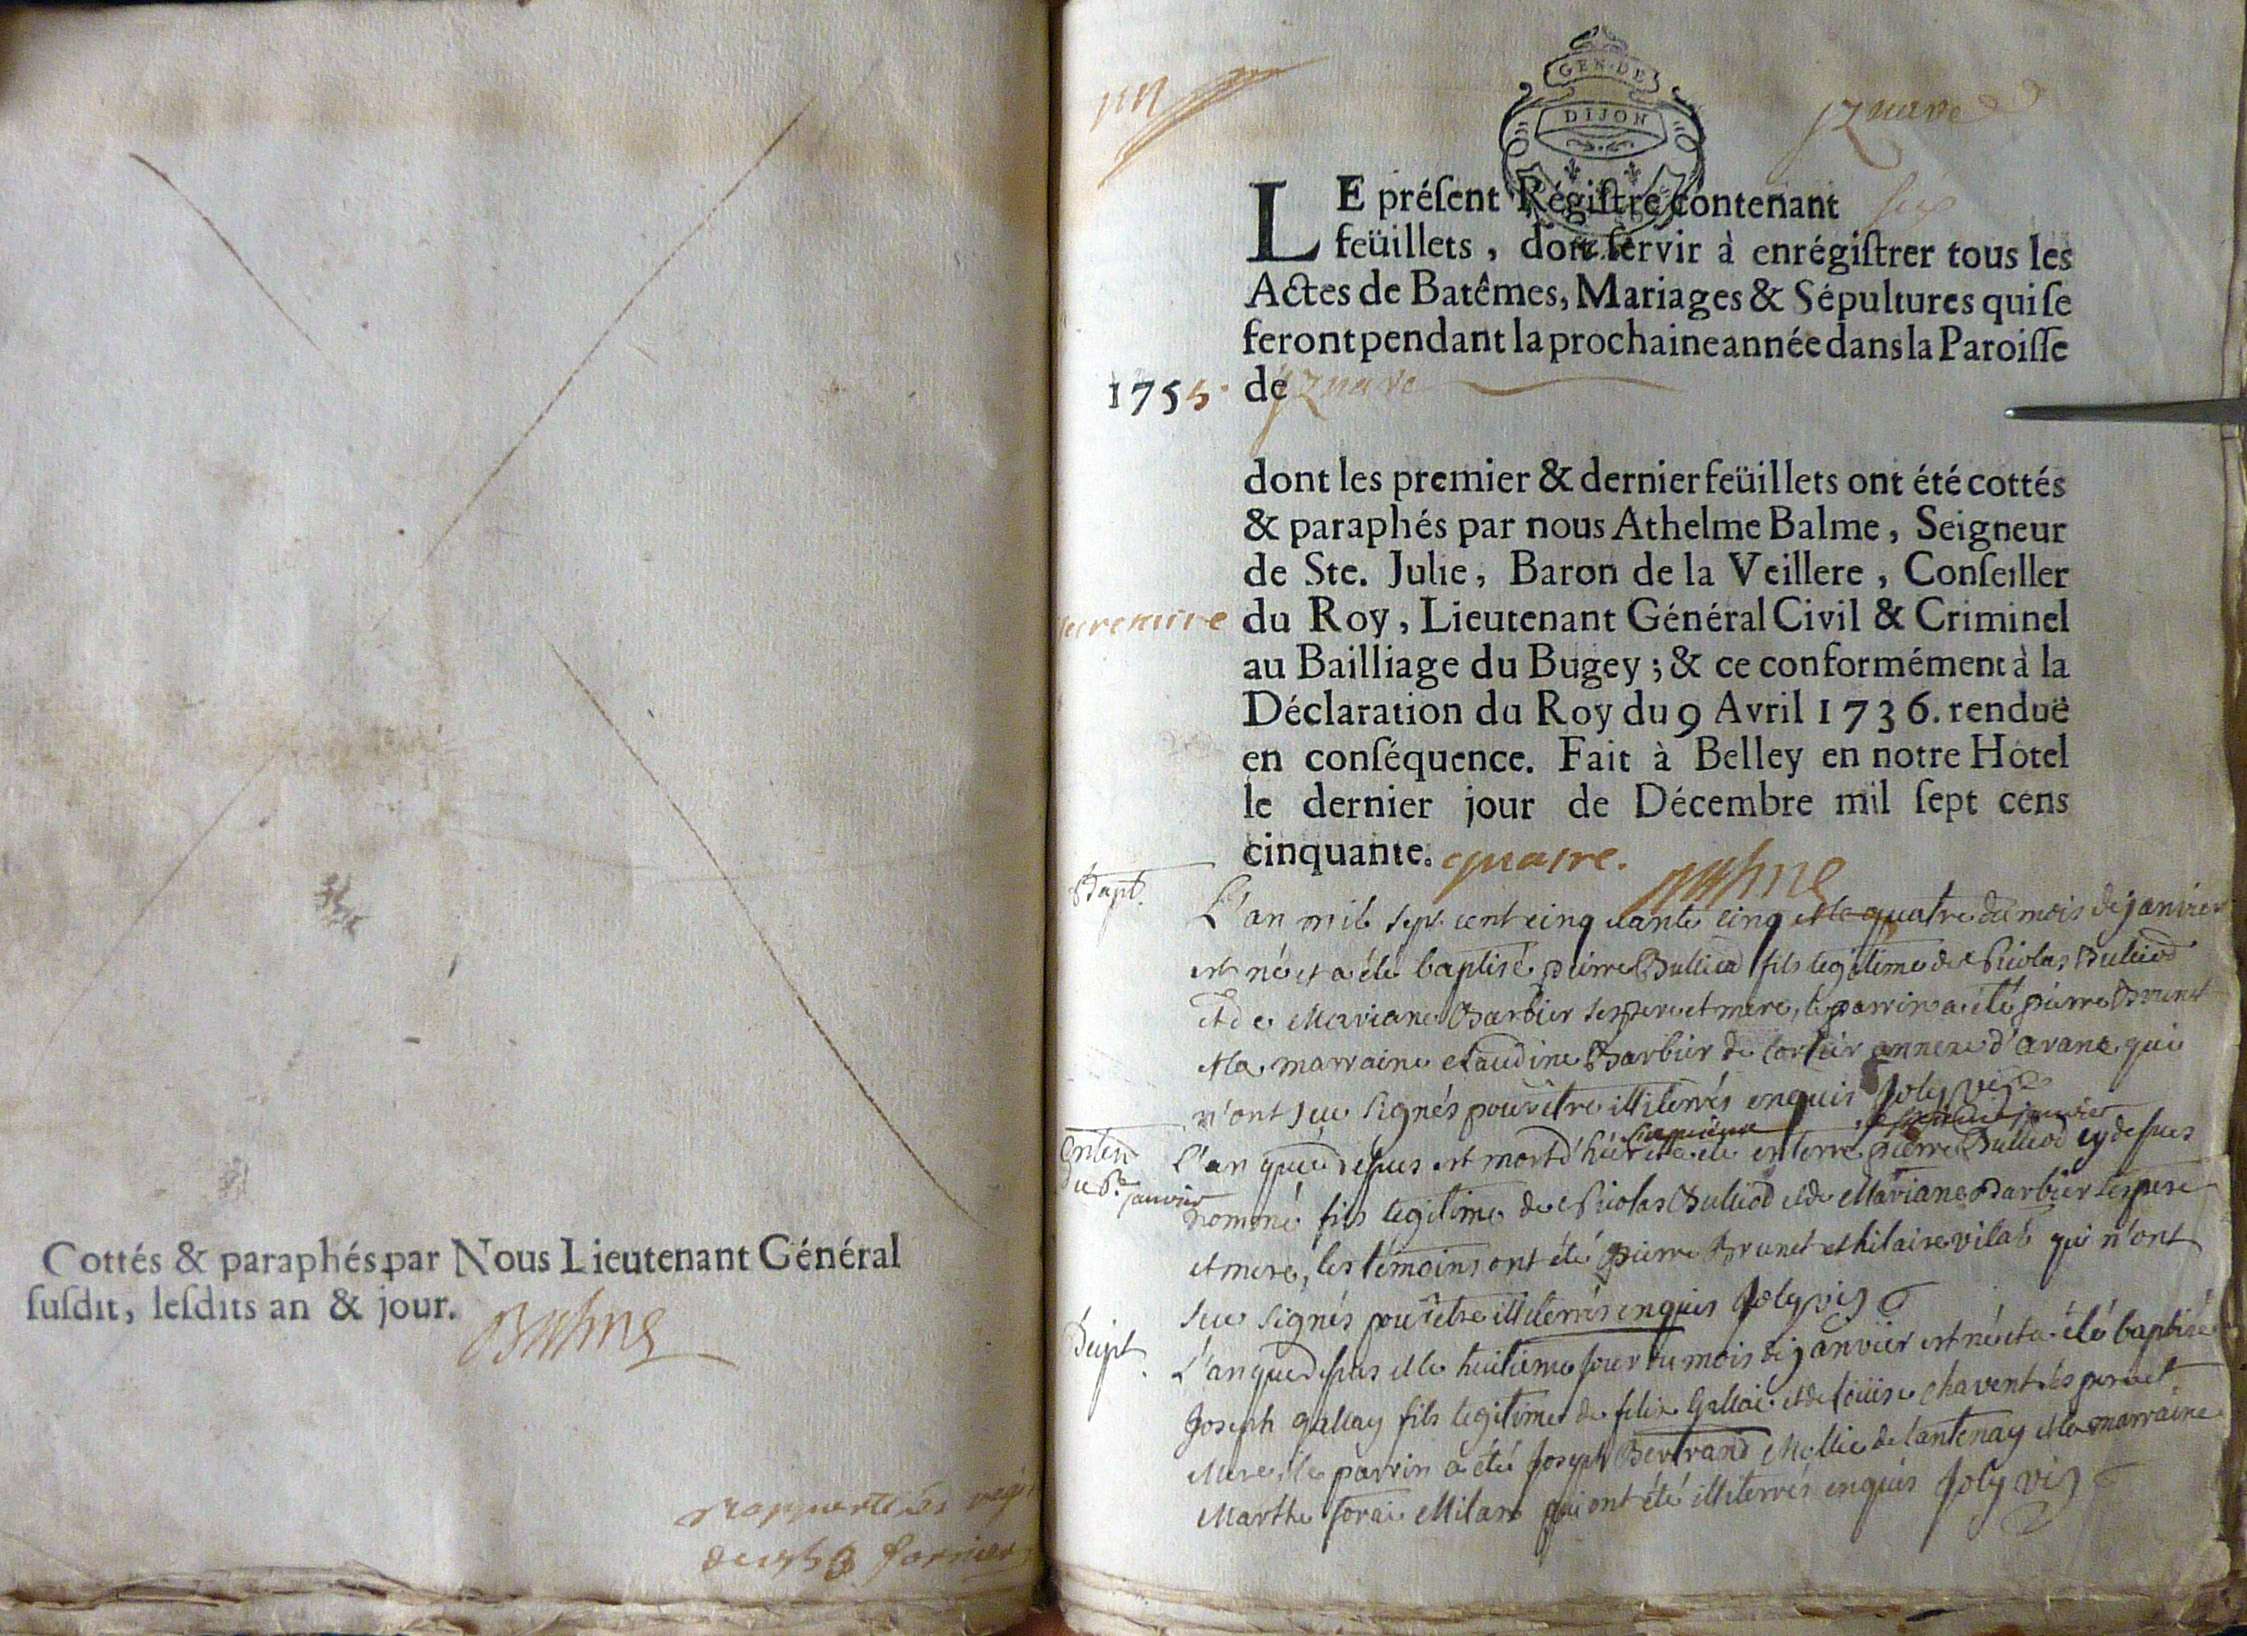 Cottés & paraphés par Nous Lieutenant Général
ſuſdit, leſdits an & jour.
Balme
un
GEN. DE
DIJON
Iznave
LE préſent Régiſtre contenant six
feüillets, doit ſervir à enrégiſtrer tous les
Actes de Batêmes, Mariages & Sépultures qui ſe
feront pendant la prochaine année dans la Paroiſſe
1755. de Iznave
dont les premier & dernier feüillets ont été cottés
& paraphés par nous Athelme Balme, Seigneur
de Ste. Julie, Baron de la Veillere, Conſeiller
du Roy, Lieutenant Général Civil & Criminel
au Bailliage du Bugey; & ce conformément à la
Déclaration du Roy du 9 Avril 1736. renduë
en conſéquence. Fait à Belley en notre Hôtel
le dernier jour de Décembre mil ſept cens
cinquante. quatre. Balme
Bapt.
L'an mil sept cent cinquante cinq et le quatre du mois de janvier
est né et a été baptisé pierre Bulliod fils legitime de Nicolas Bulliod
et de Mariane Barbier ses pere et mere, le parrin a été pierre Brunet
et la marraine claudine Barbier de annexe d'aranc qui
n'ont sçu signés pour être illiterrés enquis Joly vic
Enterr. du 6e janvier
L'an que dessus est mort d'hier et a été enterré pierre Bulliod cy dessus
nommé fils legitime de Nicolas Bulliod et de Mariane Barbier ses pere
et mere, les témoins ont été pierre Brunet et hilaire qui n'ont
sçu signés pour être illiterrés enquis Joly vic
Bapt.
L'an que dessus et le huitieme jour du mois de janvier est né et a été baptisé
Joseph gallay fils legitime de felix Gallai et de loüise chavent ses pere et
mere, le parrin a été Joseph Bertrand de lantenay et la marraine
Marthe qui ont été illiterrés enquis Joly vic